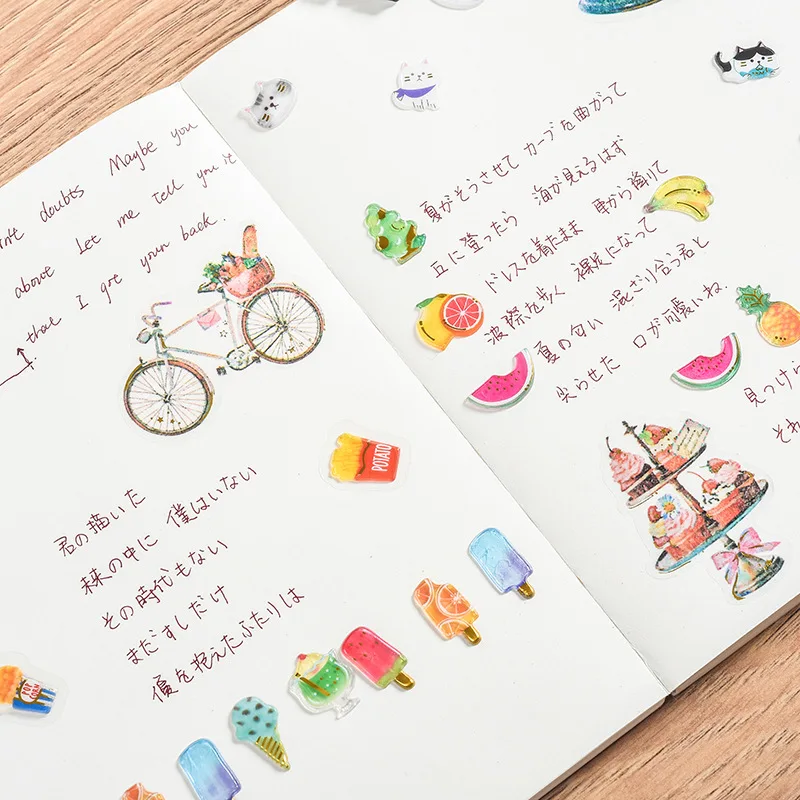 doubts Maybe you
above Let me tell you it
that I got your back.
君の描いた
未来の中に 僕はいない
その時代もない
まだすしだけ
優を抱えたふたりは
POTATO
POP CORN
夏がそうさせて カーブを曲がって
丘に登ったら 海が見えるはず
ドレスを着たまま 車から降りて
波際を歩く 裸足になって
夏の匂い 混ざり合う君と
尖らせた 口が可愛いね
見つけら
それ